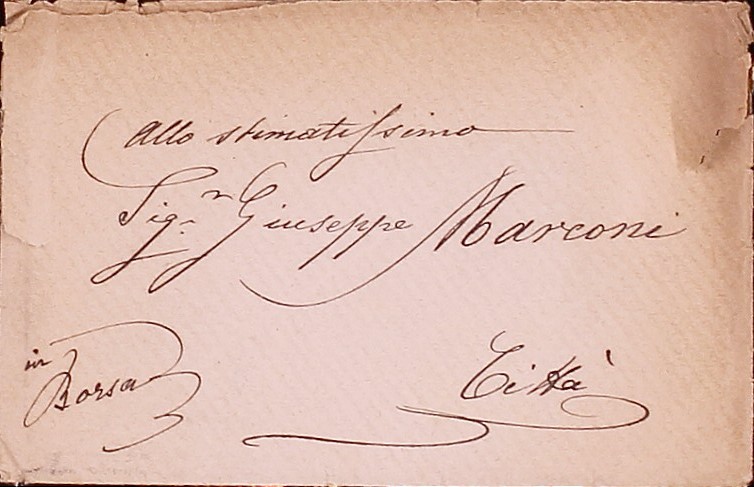 Allo stimatissimo
Sig.r Giuseppe Marconi
in
Borsa
Città